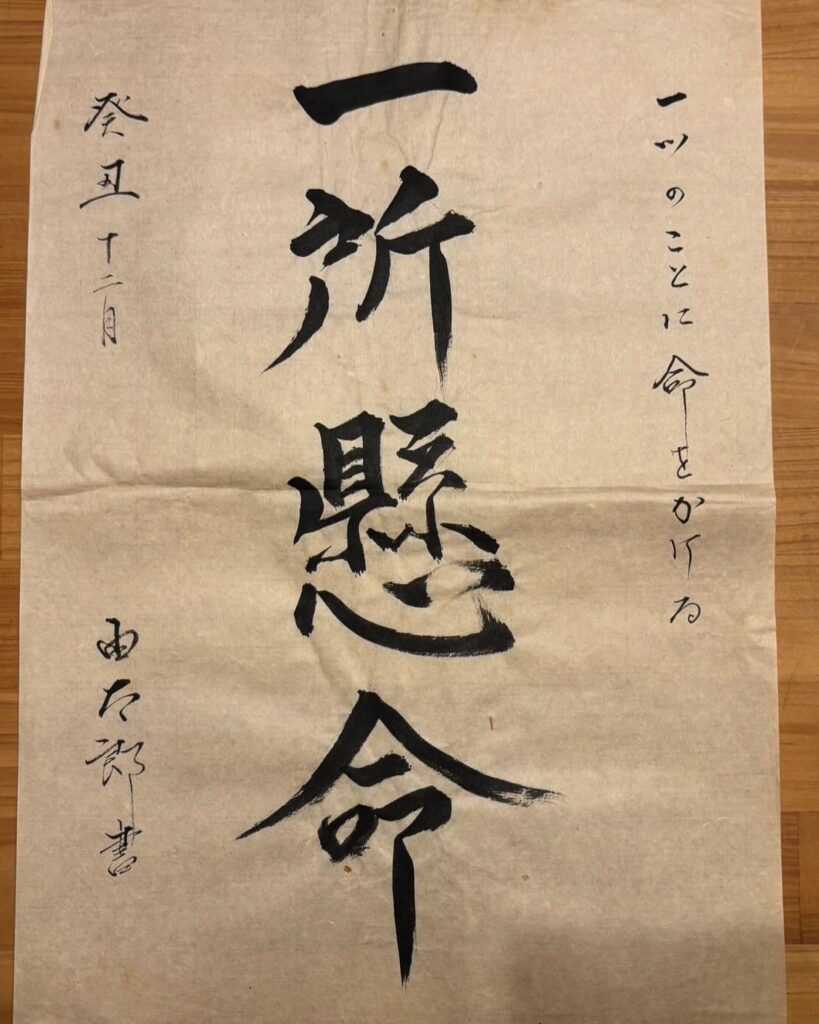 一つのことに命をかける
一所懸命
癸丑十二月
由太郎書